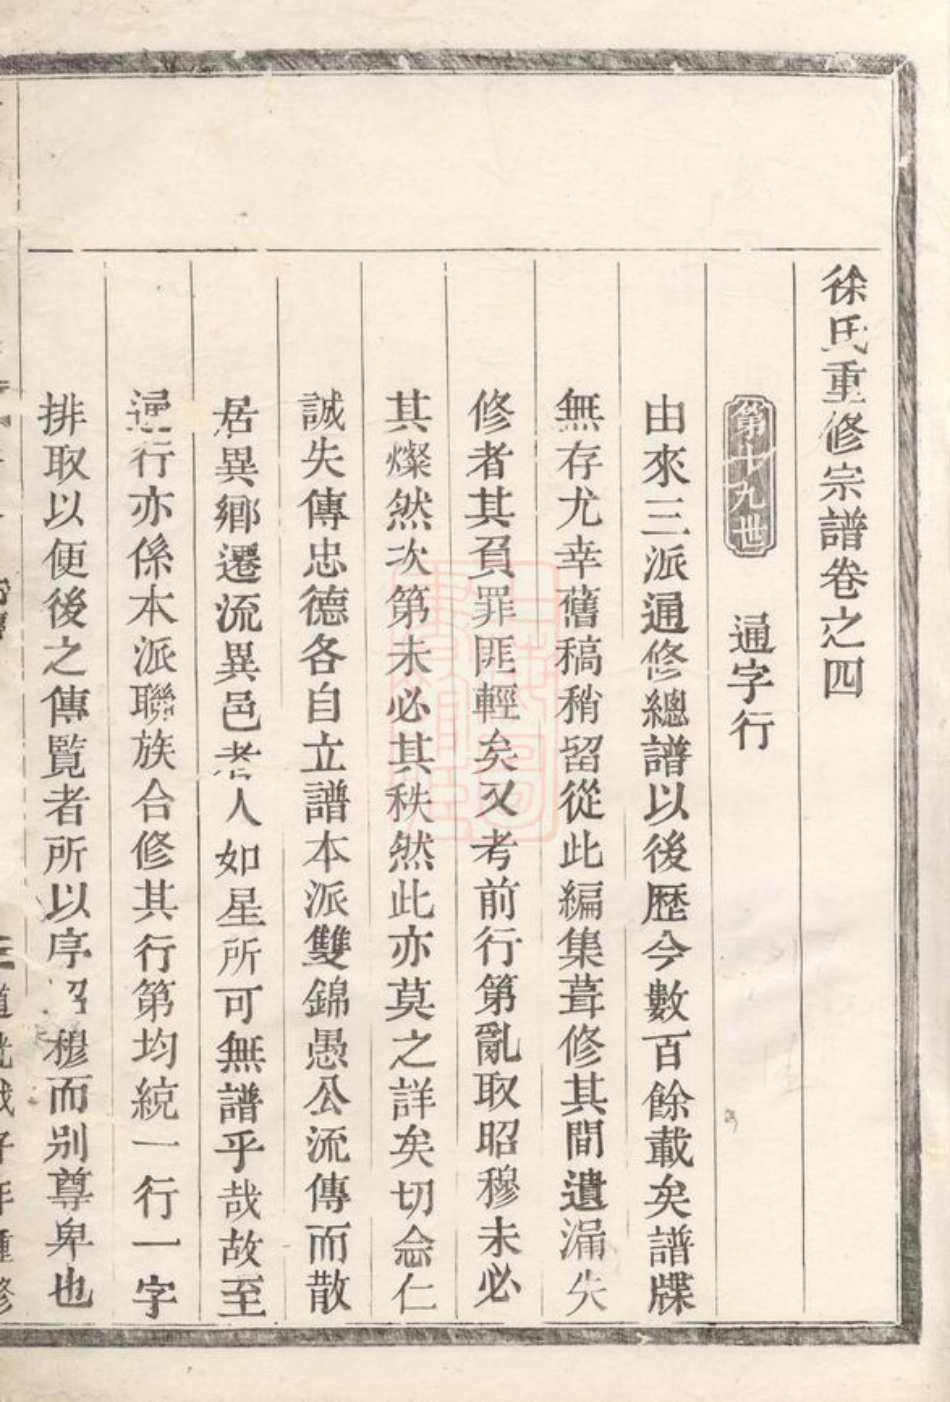 徐氏重修宗譜卷之四
第十九世　通字行
由來三派通修總譜以後歷今數百餘載矣譜牒
無存尤幸舊稿稍留從此編集葺修其間遺漏失
修者其負罪匪輕矣又考前行第亂取昭穆未必
其燦然次第未必其秩然此亦莫之詳矣切念仁
誠失傳忠德各自立譜本派雙錦愚公流傳而散
居異鄉遷流異邑者人如星所可無譜乎哉故至
通行亦係本派聯族合修其行第均統一行一字
排取以便後之傳覽者所以序昭穆而別尊卑也
道光戊子年重修